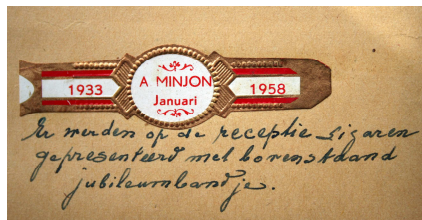 1933 A MINJON 1958
Januari
Er werden op de receptie sigaren
gepresenteerd met bovenstaand
jubileumbandje.